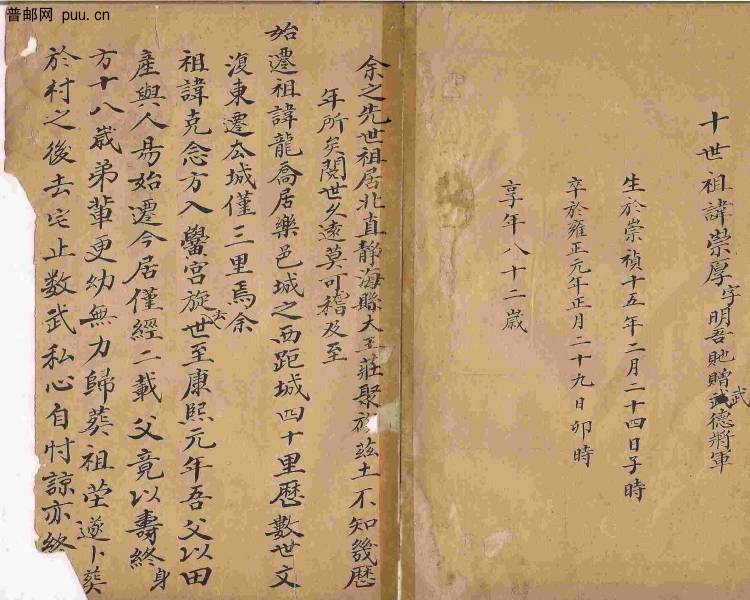 普邮网 puu.cn
十世祖諱崇厚字明吾貤贈武德將軍
武
生於崇禎十五年二月二十四日子時
卒於雍正元年正月二十九日卯時
享年八十二歲
余之先世祖居北直靜海縣大王莊聚於兹土不知幾歷
年所矣閱世久遠莫可稽及至
始遷祖諱龍喬居樂邑城之西距城四十里歷數世文
復東遷去城僅三里焉余
祖諱克念方入黌宮旋去世至康熙元年吾父以田
產與人易始遷今居僅經二載父竟以壽終身
方十八歲弟輩更幼無力歸葬祖塋遂卜葬
於村之後去宅止数武私心自忖諒亦終